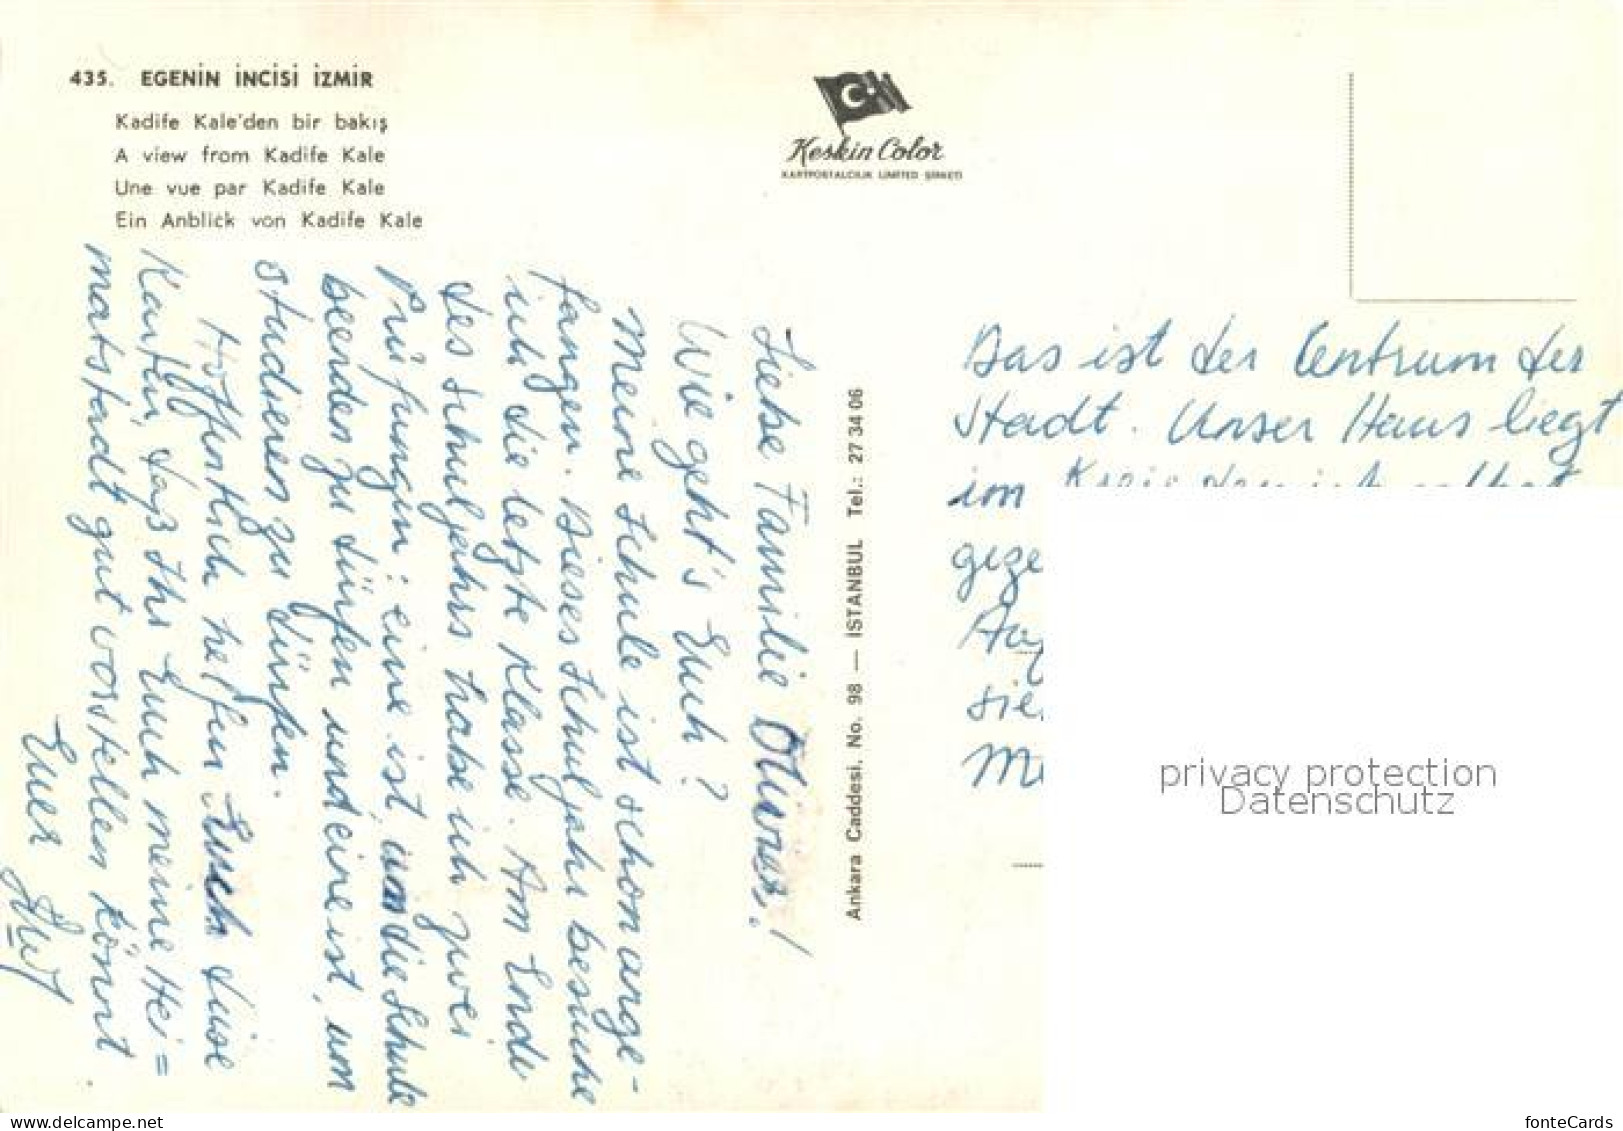 435. EGENİN İNCİSİ İZMİR
Kadife Kale'den bir bakış
A view from Kadife Kale
Une vue par Kadife Kale
Ein Anblick von Kadife Kale
Keskin Color
KARTPOSTALCILIK LIMITED ŞIRKETI
Ankara Caddesi. No. 98 — İSTANBUL Tel.: 27 34 06
Liebe Familie
Wie geht's Euch?
Meine Schule ist schon ange-
fangen. Dieses Schuljahr besuche
ich die letzte Klasse. Am Ende
des Schuljahrs habe ich zwei
Prüfungen: eine ist, um die Schule
beenden zu dürfen und eine ist, um
studieren zu dürfen.
Hoffentlich helfen Euch diese
Karten, daß Ihr Euch meine Hei=
matstadt gut vorstellen könnt.
Euer
Das ist der Centrum der
Stadt. Unser Haus liegt
im Kreis den ich selbst
geze
sie
privacy protection
Datenschutz
https://www.delcampe.net
fonteCards